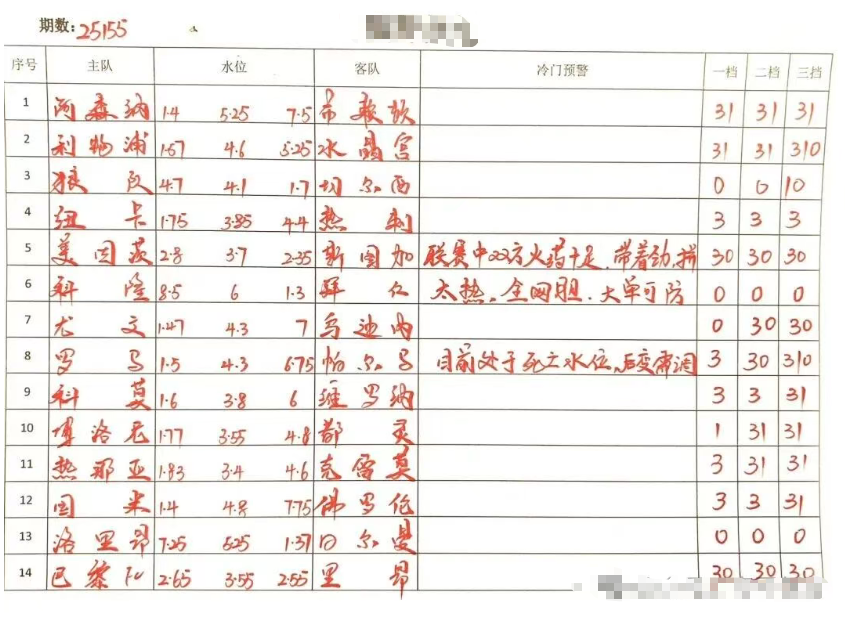 期数: 25155
序号 主队 水位 客队 冷门预警 一档 二档 三挡
1 阿森纳 1.4 5.25 7.5 布教授 31 31 31
2 利物浦 1.57 4.6 5.25 水晶宫 31 31 310
3 狼队 4.7 4.1 1.7 切尔西 0 0 10
4 纽卡 1.75 3.85 4.4 热刺 3 3 3
5 美因茨 2.8 3.7 2.35 斯图加 联赛中双方火药十足.带着劲.拼 30 30 30
6 科隆 8.5 6 1.3 拜仁 太热.全网胆.大单可防 0 0 0
7 尤文 1.47 4.3 7 乌迪内 0 30 30
8 罗马 1.5 4.3 6.75 帕尔马 目前处于死亡水位.后变需调 3 30 310
9 科莫 1.6 3.8 6 维罗纳 3 3 31
10 博洛尼 1.77 3.55 4.8 都灵 1 31 31
11 热那亚 1.83 3.4 4.6 克雷莫 3 31 31
12 国米 1.4 4.8 7.75 佛罗伦 3 3 31
13 洛里昂 7.25 5.25 1.37 日尔曼 0 0 0
14 巴黎FC 2.65 3.55 2.55 里昂 30 30 30